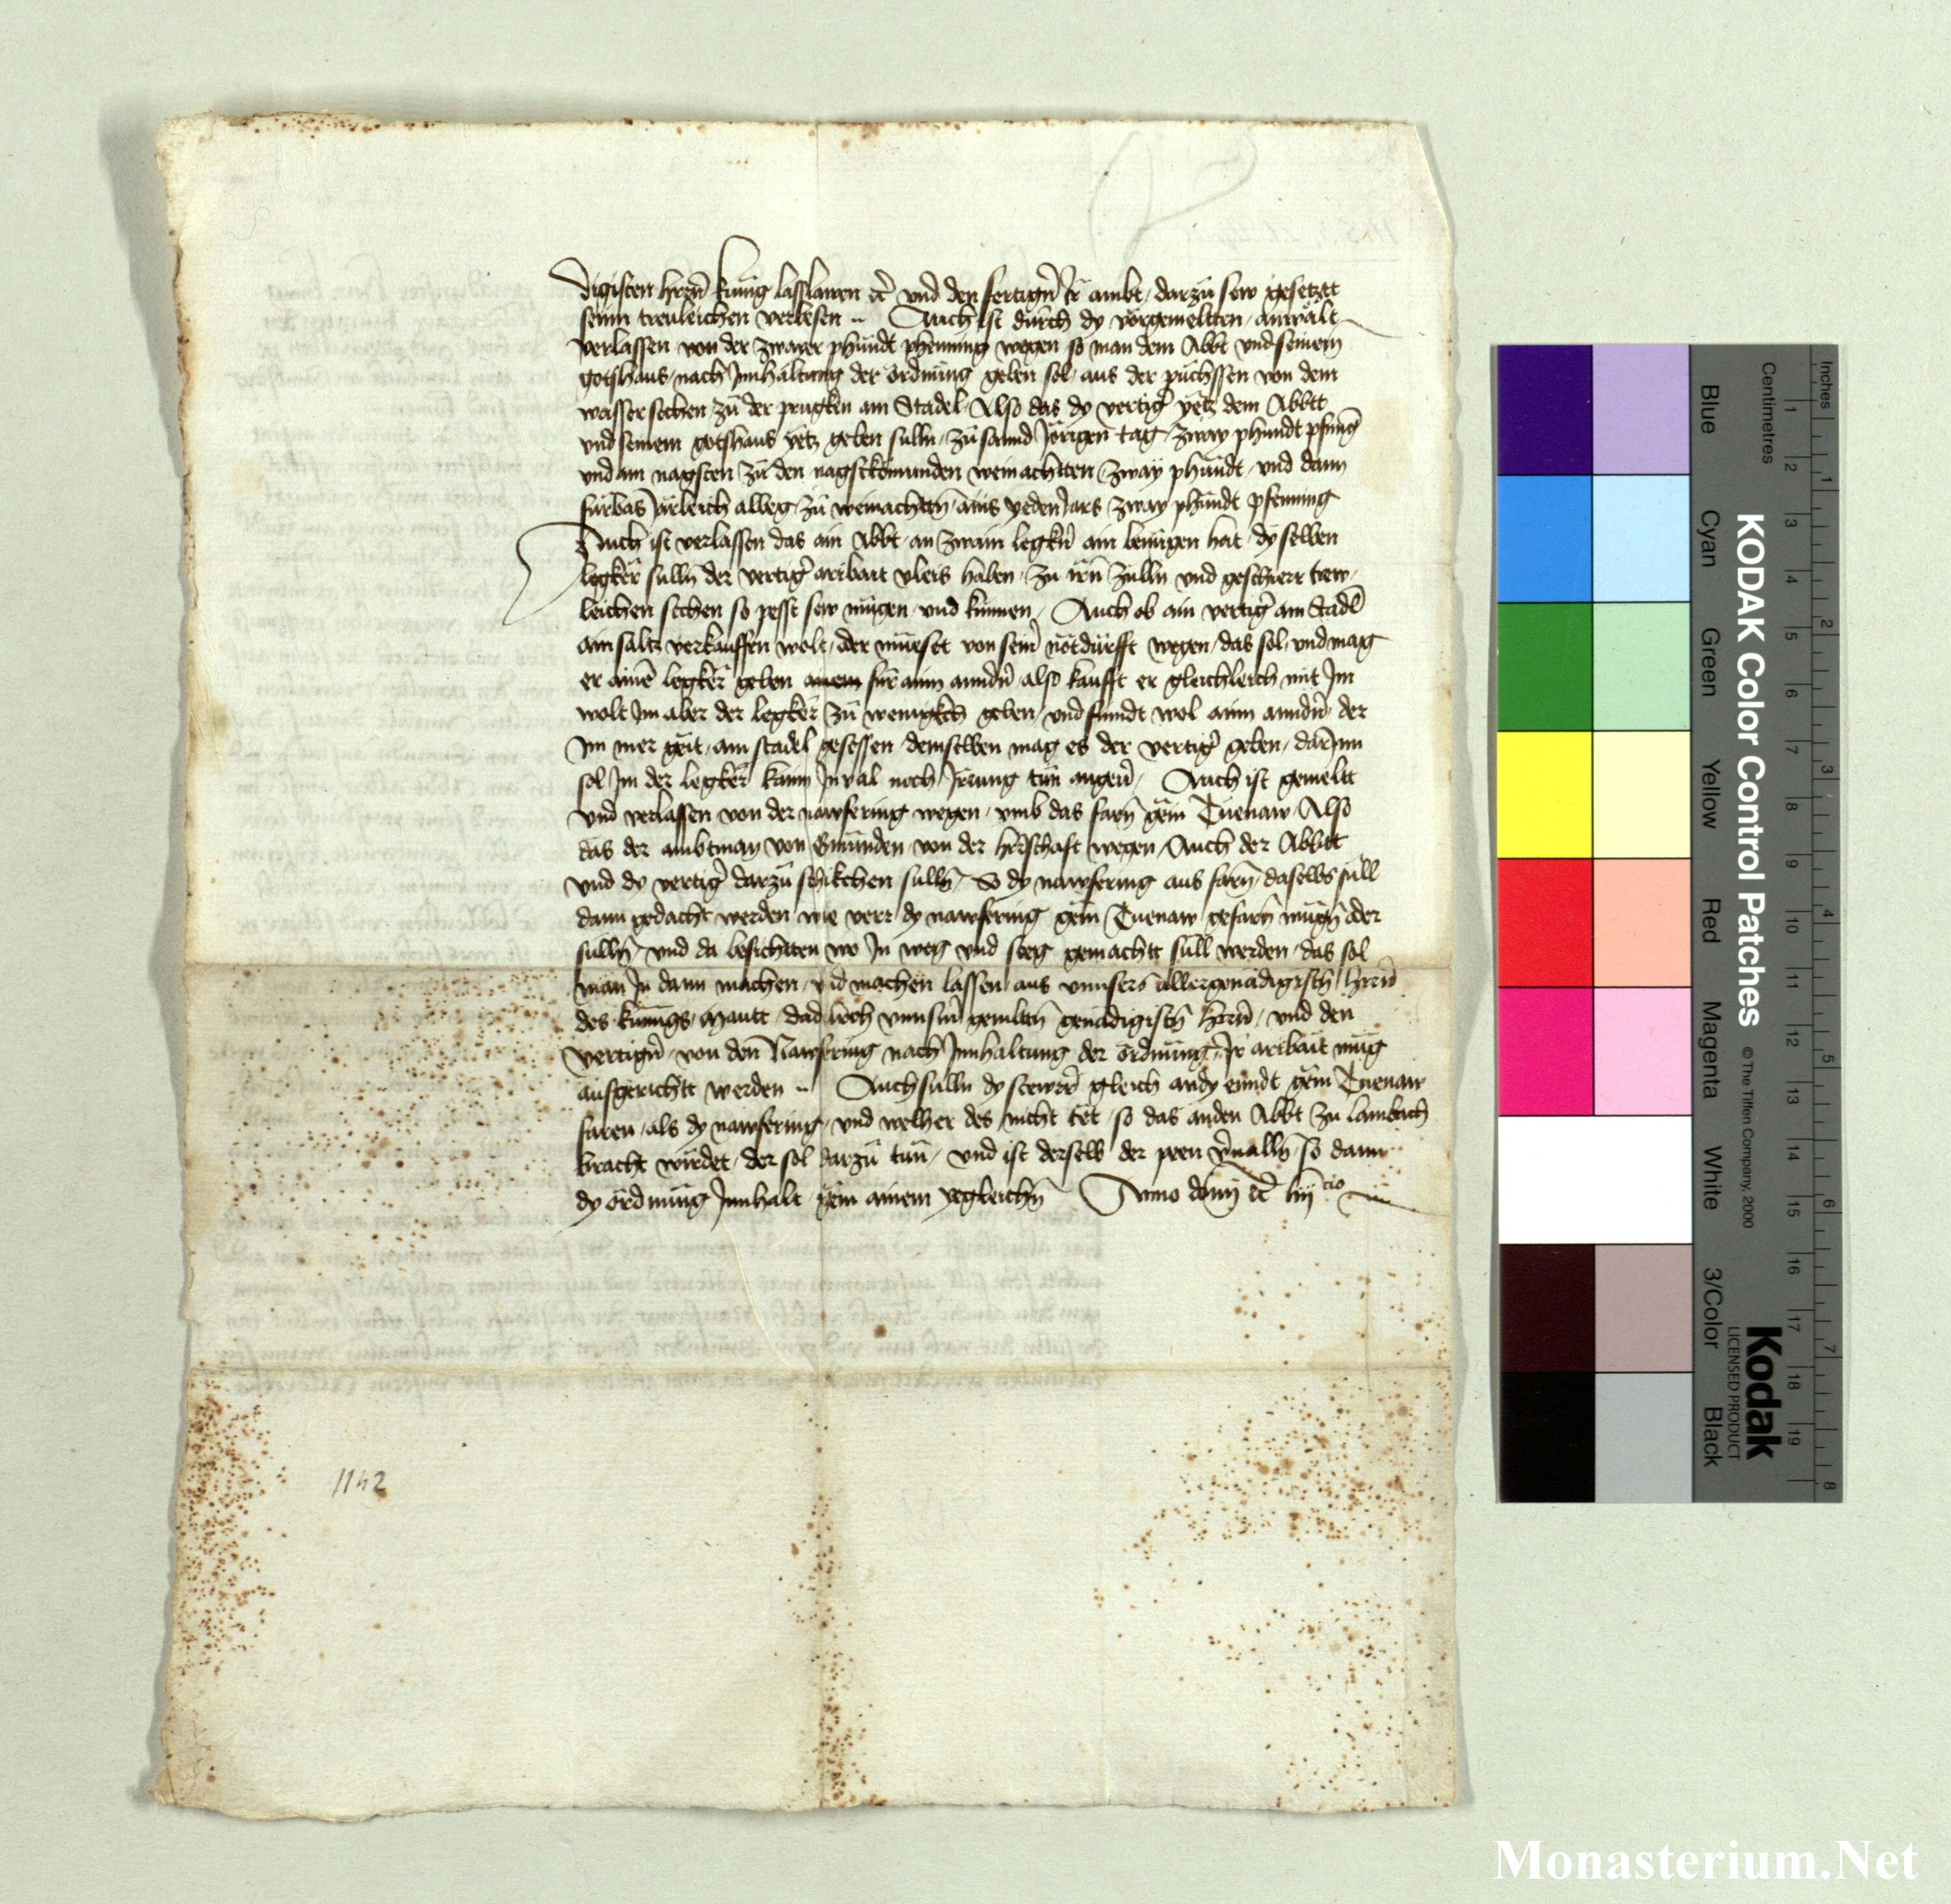 digisten hrrn kunig lasslawen etc und den fertigern Ir ambt darzu sew gesetzt
seinn treuleichen verwesen Auch ist durch dy vorgemeltten anwält
verlassen von der zwayer phundt phenning wegen so man dem Abbt und seinem
gotshaus nach Innhaltung der ordnung geben sol aus der puchssen von dem
wassersechen zu der prugken am Stadel Also das dy vertiger yetz dem Abbtt
und seinem gotshaus yetz geben sulln zu sannd Jörigen tag zway phundt pfning
und am nagsten zu den nagstkomunden weinachtten zway phundt und dann
furbas Järleich alweg zu weinachten ains yeden Jars zway phundt pfenning
Auch ist verlassen das ain Abbt an zwain legkern ain benugen hat dyselben
legker sulln der vertiger aribait vleis haben zu irn zulln und geschierr trew
leichen sechen so pesst sew mugen und kunnen Auch ob ain vertiger am Stadel
ain saltz verkauffen wolt oder mueset von seiner notdurfft wegen das sol und mag
er ainem legker geben fur ainn anndern also kaufft er gleichleich mit Im
wolt Im aber der legker zu wenigkch geben und fundt wol ainn anndern der
Im mer geit am stadel gesessen demselben mag es der vertiger geben darinn
sol Im der legker kainn Inval noch Irrung tun Auch ist gemeltt
und verlassen von der nawfering wegen umb das farn gein Tuenaw Also
das der ambtman von Gmunden von der hrrschaft wegen Auch der Abbtt
und dy vertiger darzu schikchen sulln So dy nawfering aus farn daselbs sull
dann gedacht werden wie verr dy nawfering gein Tuenaw gefarn mugn oder
sulln und da besichtten wo In weg und steg gemachtt sull werden das sol
man In dann machen und machen lassen aus unnsers allergenadigisten hrrn
des kunigs Mautt dad unnserm gemelten genadigisten hrrn und den
vertigern von den Nawfering nach Innhaltung der ordnung Ir aribait mug
ausgerichtt werden Auch sulln dy stewrer gleich an dy enndt gein Tuenaw
faren als dy nawfering und welher des nicht tet so das an den Abbt zu lambach
bracht wurdet der sol darzu tun und ist derselb der peen vervalln so dann
dy ordnung Innhalt gein ainem yegleichn Anno domini etc liij cio
1142
KODAK Color Control Patches © The Tiffen Company, 2000 Kodak LICENSED PRODUCT
Inches 1 2 3 4 5 6 7 8
Centimetres 1 2 3 4 5 6 7 8 9 10 11 12 13 14 15 16 17 18 19
Blue Cyan Green Yellow Red Magenta White 3/Color Black
Monasterium.Net